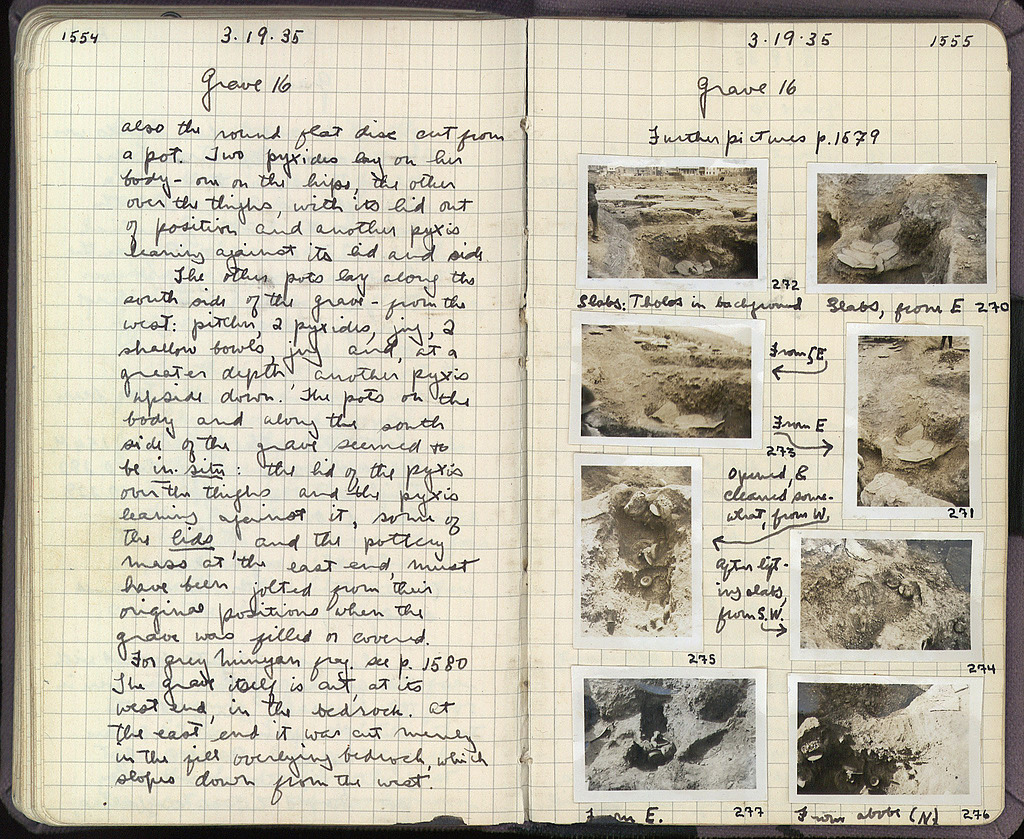 1554
3·19·35
Grave 16
also the round flat disc cut from
a pot. Two pyxides lay on her
body - one on the hips, the other
over the thighs, with its lid out
of position and another pyxis
leaning against its lid and side
The other pots lay along the
south side of the grave - from the
west: pitcher, 2 pyxides, jug, 2
shallow bowls, jug and, at a
greater depth, another pyxis
upside down. The pots on the
body and along the south
side of the grave seemed to
be in situ: the lid of the pyxis
over the thighs and the pyxis
leaning against it, some of
the lids, and the pottery
mass at the east end, must
have been jolted from their
original positions when the
grave was filled or covered.
For grey minyan frag. see p. 1580
The grave itself is cut, at its
west end, in the bedrock. At
the east end it was cut merely
in the fill overlying bedrock, which
slopes down from the west.
3·19·35
1555
Grave 16
Further pictures p. 1579
272
Slabs: Tholos in background
Slabs, from E 270
From SE
From E
273
271
Opened, &
cleaned some-
what, from W.
After lift-
ing slabs,
from S.W.
275
274
From E.
277
From above (N)
276